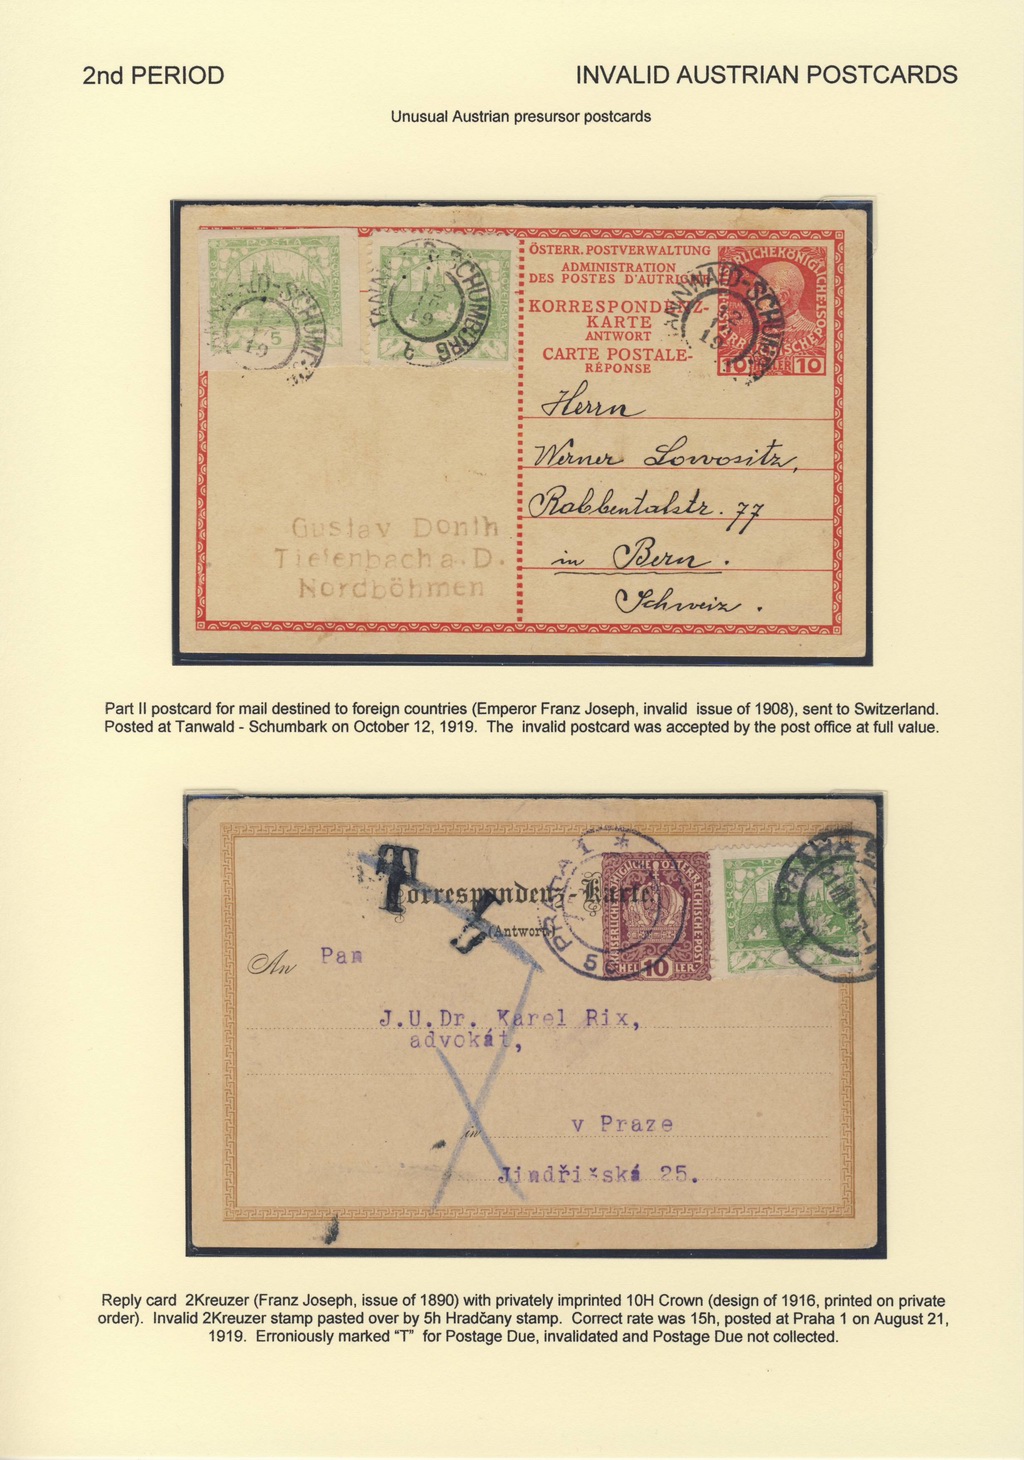 2nd PERIOD
INVALID AUSTRIAN POSTCARDS
Unusual Austrian presursor postcards
POSTA
5
TANNWALD-SCHUMBURG
19
ÖSTERR. POSTVERWALTUNG
ADMINISTRATION
DES POSTES D'AUTRICHE
KORRESPONDENZ-
KARTE
ANTWORT
CARTE POSTALE-
RÉPONSE
10 HELLER 10
Herrn
Werner Lowositz,
Rabbentalstr. 77
in Bern.
Schweiz.
Gustav Donth
Tiefenbach a. D.
Nordböhmen
Part II postcard for mail destined to foreign countries (Emperor Franz Joseph, invalid issue of 1908), sent to Switzerland.
Posted at Tanwald - Schumbark on October 12, 1919. The invalid postcard was accepted by the post office at full value.
T
Correspondenz-Karte.
(Antwort)
PRAHA 1
5c
HELLER 10
PRAHA
An Pan
J.U.Dr. Karel Rix,
advokát,
in v Praze
Jindřišská 25.
Reply card 2Kreuzer (Franz Joseph, issue of 1890) with privately imprinted 10H Crown (design of 1916, printed on private
order). Invalid 2Kreuzer stamp pasted over by 5h Hradčany stamp. Correct rate was 15h, posted at Praha 1 on August 21,
1919. Erroniously marked "T" for Postage Due, invalidated and Postage Due not collected.